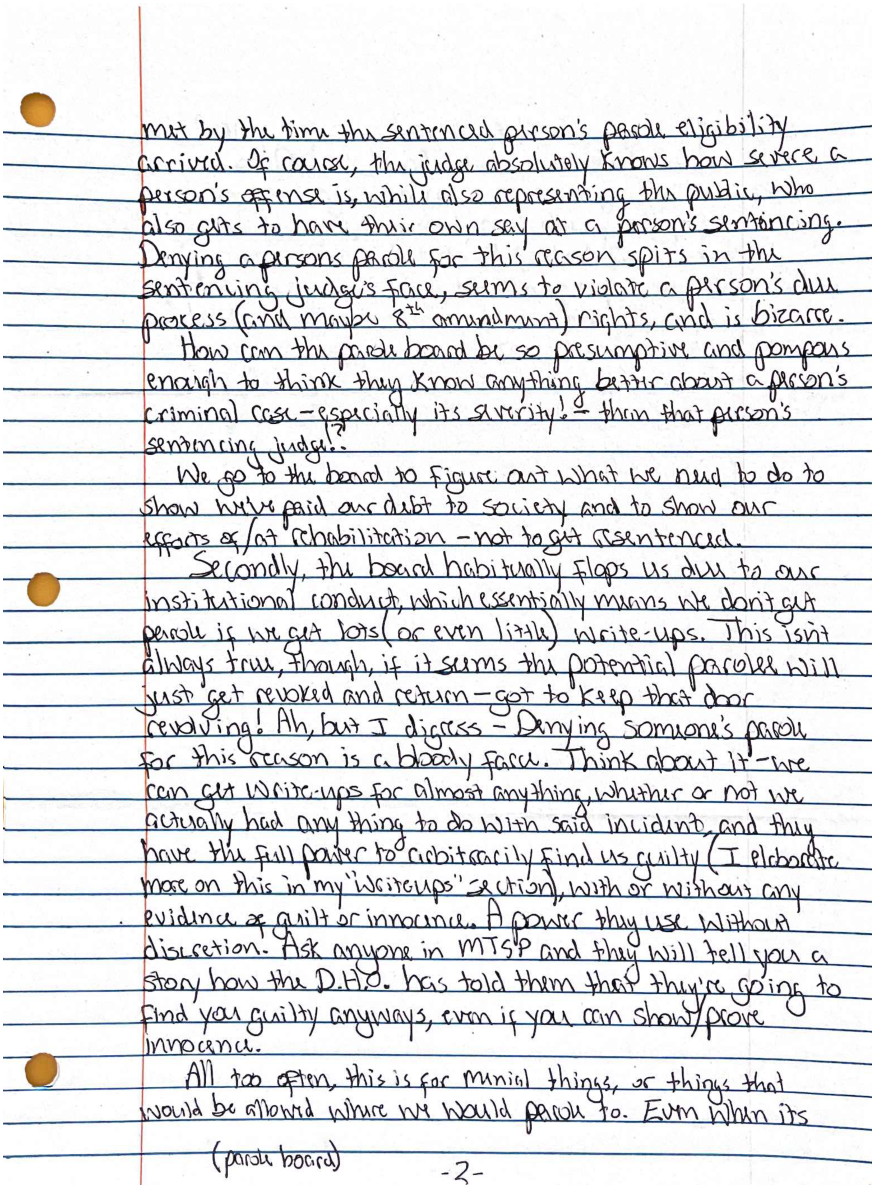 met by the time the sentenced person's parole eligibility
arrived. Of course, the judge absolutely knows how severe a
person's offense is, while also representing the public, who
also gets to have their own say at a person's sentencing.
Denying a persons parole for this reason spits in the
sentencing judge's face, seems to violate a person's due
process (and maybe 8th amendment) rights, and is bizarre.
How can the parole board be so presumptive and pompous
enough to think they know anything better about a person's
criminal case - especially its severity! - than that person's
sentencing judge!?
We go to the board to figure out what we need to do to
show we've paid our debt to society and to show our
efforts of/at rehabilitation - not to get resentenced.
Secondly, the board habitually flops us due to our
institutional conduct, which essentially means we don't get
parole if we get lots (or even little) write-ups. This isn't
always true, though, if it seems the potential parolee will
just get revoked and return - got to keep that door
revolving! Ah, but I digress - Denying someone's parole
for this reason is a bloody farce. Think about it - we
can get write-ups for almost anything, whether or not we
actually had any thing to do with said incident, and they
have the full power to arbitrarily find us guilty (I elaborate
more on this in my "writeups" section), with or without any
evidence of guilt or innocence. A power they use without
discretion. Ask anyone in MTSP and they will tell you a
story how the D.H.O. has told them that they're going to
find you guilty anyways, even if you can show/prove
innocence.
All too often, this is for menial things, or things that
would be allowed where we would parole to. Even when its
(parole board)
-2-